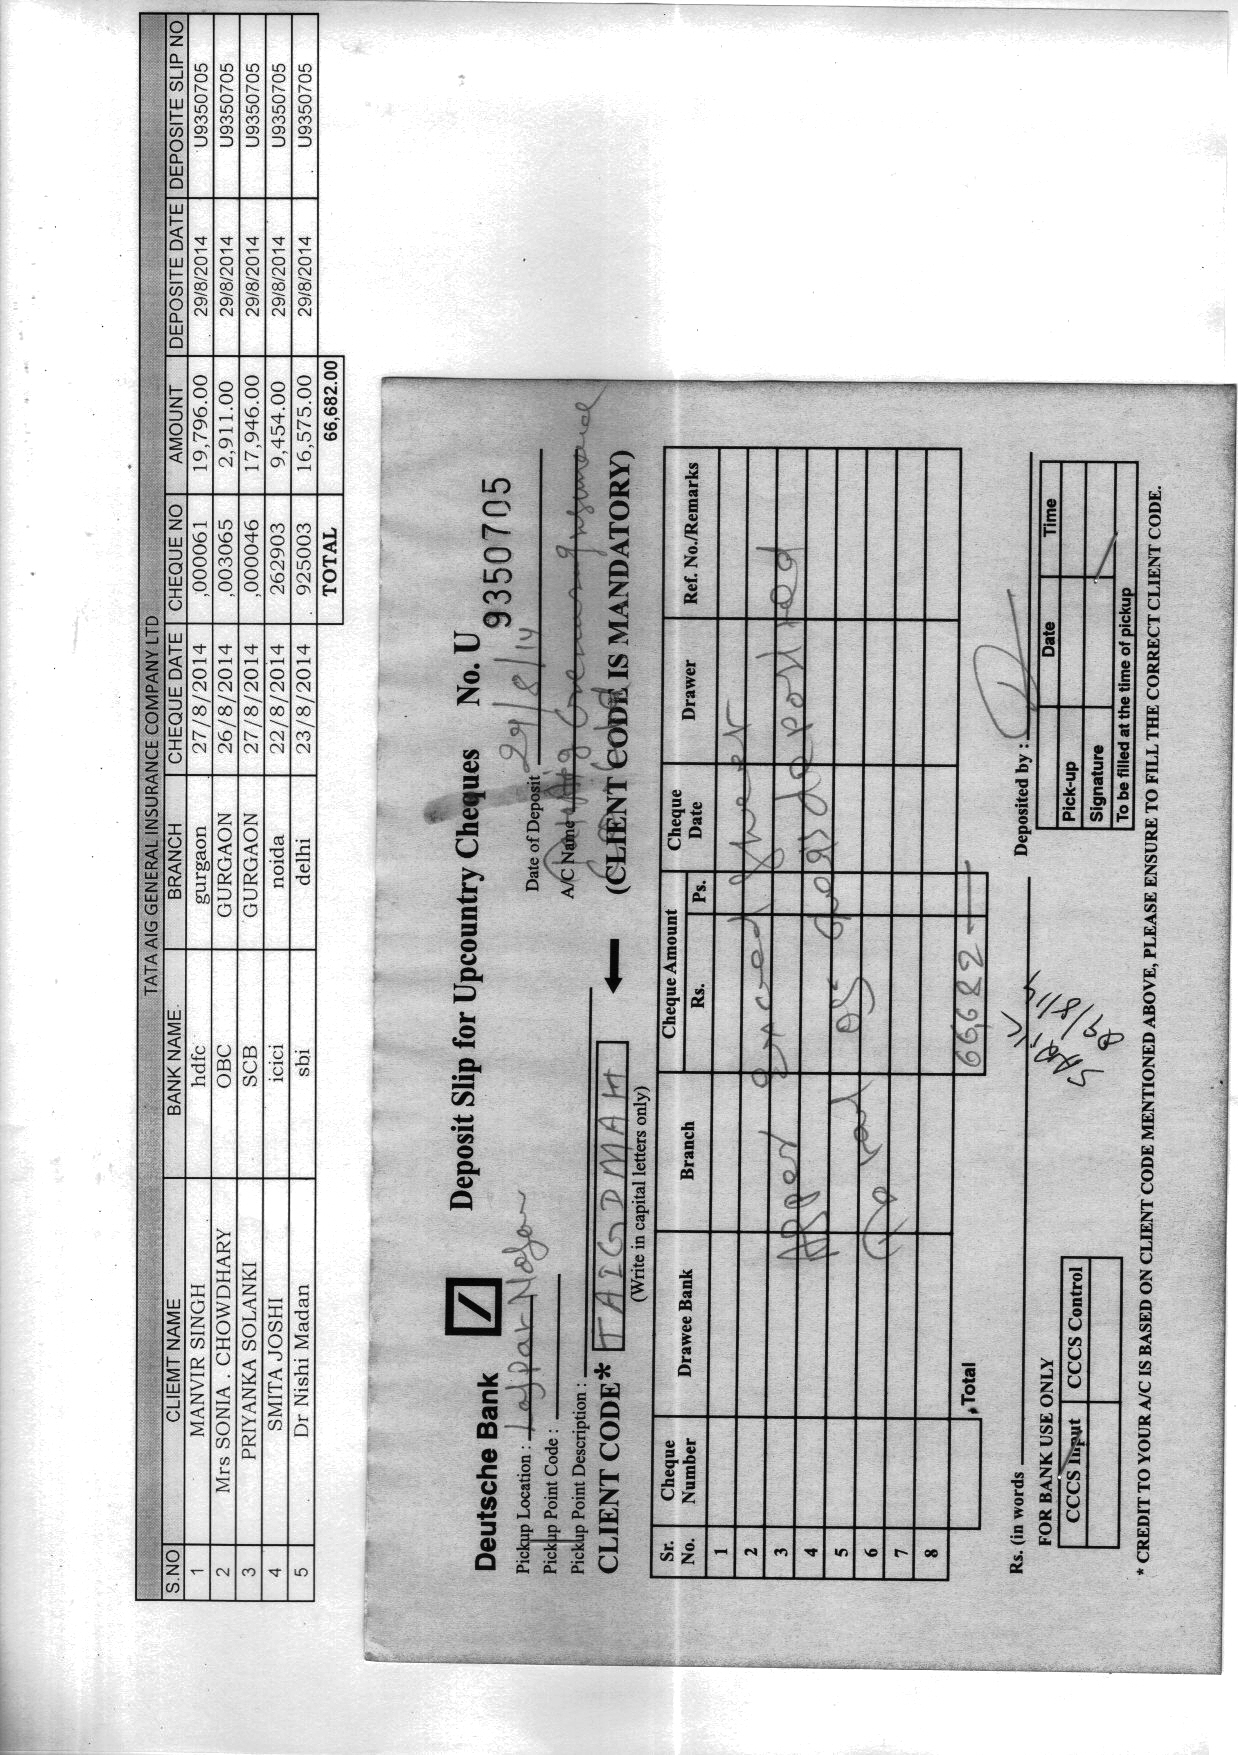 TATA AIG GENERAL INSURANCE COMPANY LTD
S.NO CLIEMT NAME BANK NAME BRANCH CHEQUE DATE CHEQUE NO AMOUNT DEPOSITE DATE DEPOSITE SLIP NO
1 MANVIR SINGH hdfc gurgaon 27/8/2014 ,000061 19,796.00 29/8/2014 U9350705
2 Mrs SONIA . CHOWDHARY OBC GURGAON 26/8/2014 ,003065 2,911.00 29/8/2014 U9350705
3 PRIYANKA SOLANKI SCB GURGAON 27/8/2014 ,000046 17,946.00 29/8/2014 U9350705
4 SMITA JOSHI icici noida 22/8/2014 262903 9,454.00 29/8/2014 U9350705
5 Dr Nishi Madan sbi delhi 23/8/2014 925003 16,575.00 29/8/2014 U9350705
TOTAL 66,682.00
Deutsche Bank Deposit Slip for Upcountry Cheques No. U 9350705
Pickup Location : Lajpat Nagar Date of Deposit 29/8/14
Pickup Point Code : A/C Name Tata Aig General Insurance
Pickup Point Description :
CLIENT CODE* TAIGDMAH (CLIENT CODE IS MANDATORY)
(Write in capital letters only)
Sr. No. Cheque Number Drawee Bank Branch Cheque Amount Rs. Ps. Cheque Date Drawer Ref. No./Remarks
1
2
3
4
5
6
7
8
As per Enclosed Sheet
05 deposited
Total 66,682
Rs. (in words Deposited by :
29/8/14
FOR BANK USE ONLY
CCCS Input CCCS Control
Date Time
Pick-up
Signature
To be filled at the time of pickup
* CREDIT TO YOUR A/C IS BASED ON CLIENT CODE MENTIONED ABOVE, PLEASE ENSURE TO FILL THE CORRECT CLIENT CODE.